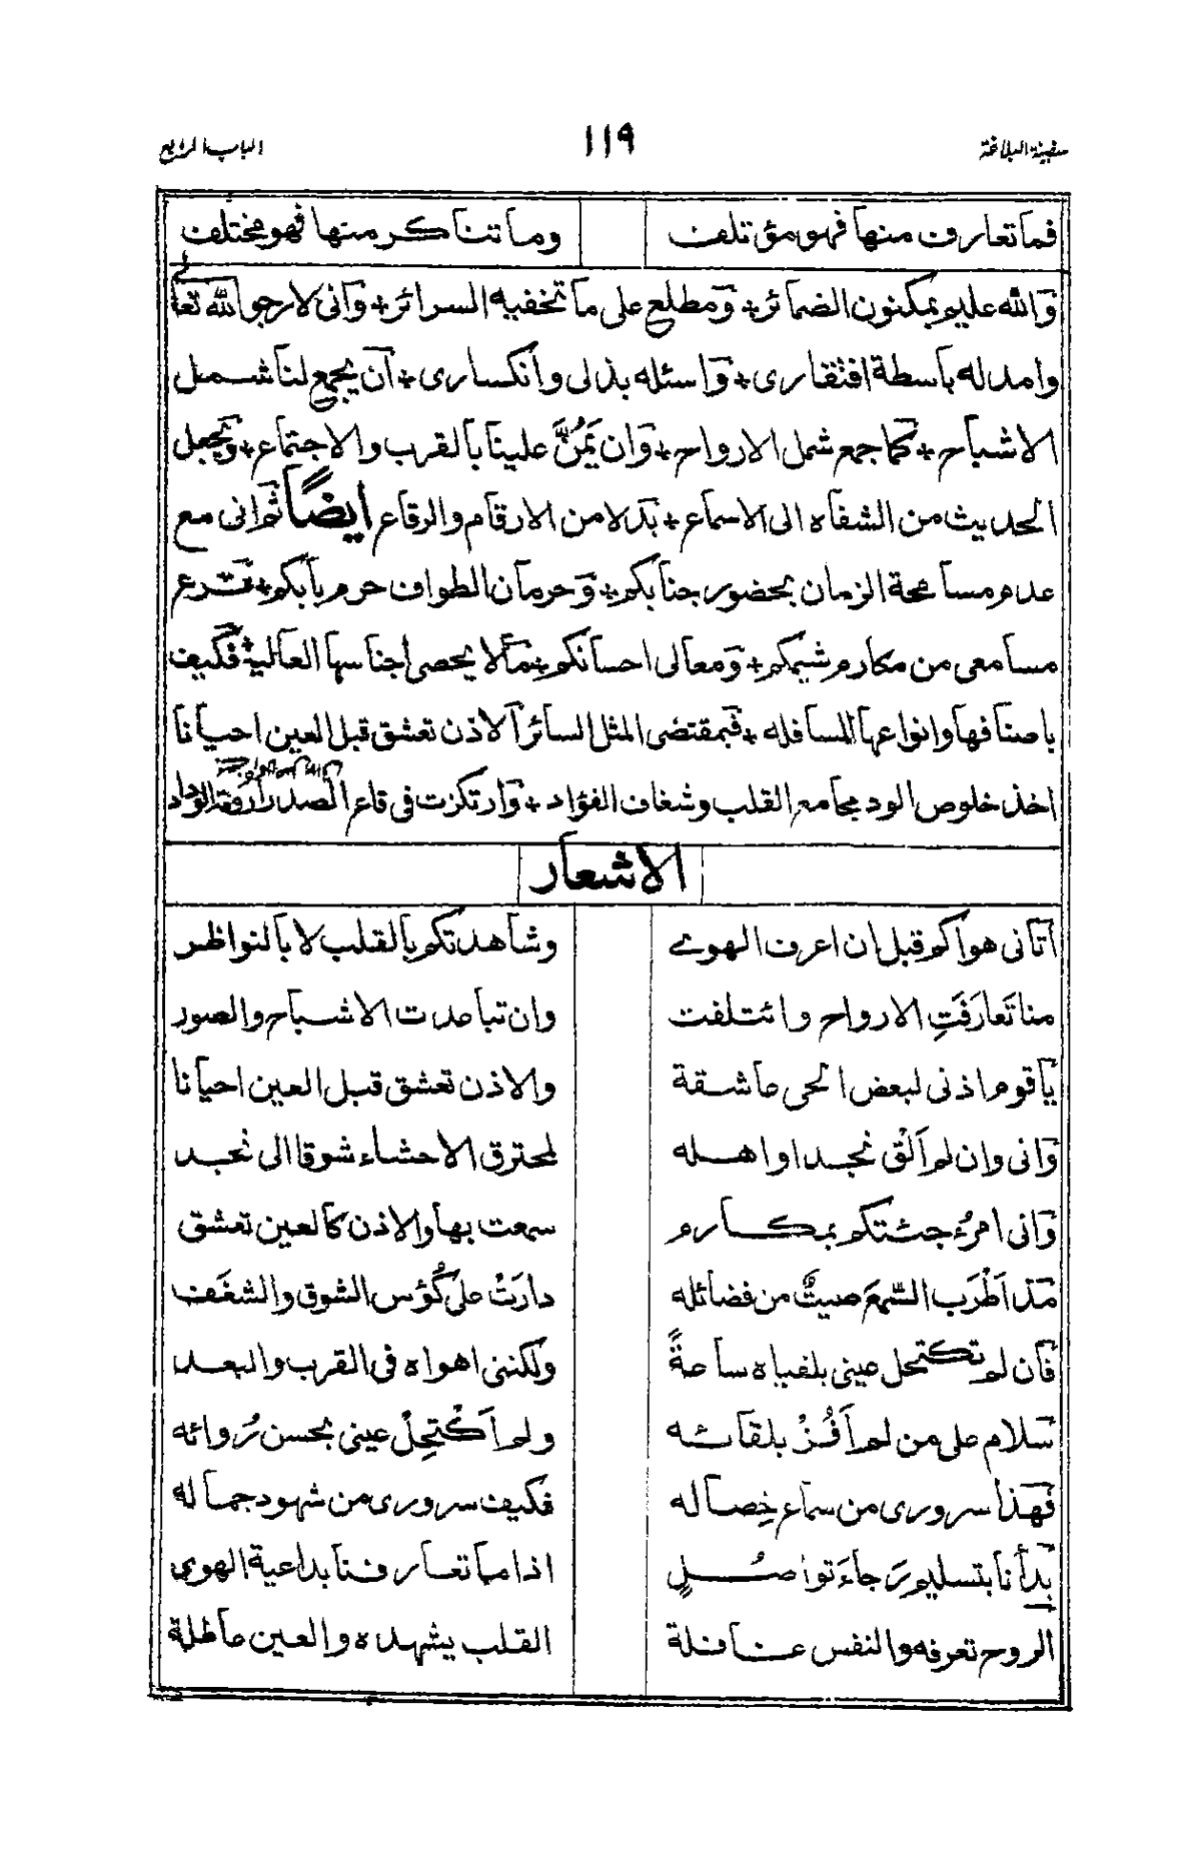 سفينة البلاغة ١١٩ الباب الرابع
فما تعارف منها فهو مؤتلف وما تناكر منها فهو مختلف
والله عليم بمكنون الضمائر + ومطلع على ما تخفيه السرائر + وانى لارجو الله تعالى
وامد له باسطة افتقارى + واسئله بذلى وانكسارى + ان يجمع لنا شمل
الاشباح + كما جمع شمل الارواح + وان يَمُنَّ علينا بالقرب والاجتماع + ويجعل
الحديث من الشفاه الى الاسماع + بدلا من الارقام والرقاع ايضًا ثم انى مع
عدم مسامحة الزمان بحضور جنابكم + وحرمان الطواف حرم بابكم + تقرع
مسامعى من مكارم شيمكم + ومعالى احسانكم + مالا يحصى اجناسها العالية + فكيف
باصنافها وانواعها السافله + فبمقتضى المثل السائر الاذن تعشق قبل العين احيانا
اخذ خلوص الود مجامع القلب وشغاف الفؤاد + وارتكزت فى قاع الصدر اروقة الوداد
الاشعار
اتانى هواكم قبل ان اعرف الهوى وشاهدتكم بالقلب لا بالنواظر
منا تَعارَفَتِ الارواح وائتلفت وان تباعدت الاشباح والصور
ياقوم اذنى لبعض الحى عاشقة والاذن تعشق قبل العين احيانا
وانى وان لم اَلْقَ نجدا واهله لمحترق الاحشاء شوقا الى نجد
وانى امرُء جئتكم بمكارم سمعت بها والاذن كالعين تعشق
مذ اَطْرَب السَّمعَ صيتٌ من فضائله دارَتْ علىَّ كُؤس الشوق والشغَف
فان لم تكتحل عينى بلقياه ساعةً ولكننى اهواه فى القرب والبعد
سلام على من لم اَفُزْ بلقائه ولم اَكْتَحِلْ عينى بحسن رُوائه
فهذا سرورى من سماع خِصاله فكيف سرورى من شهود جماله
بدأنا بتسليم رَجاءَ تواصُلٍ اذا ما تعارفنا بداعية الهوى
الروح تعرفه والنفس عنافلة القلب يشهده والعين ماطلة